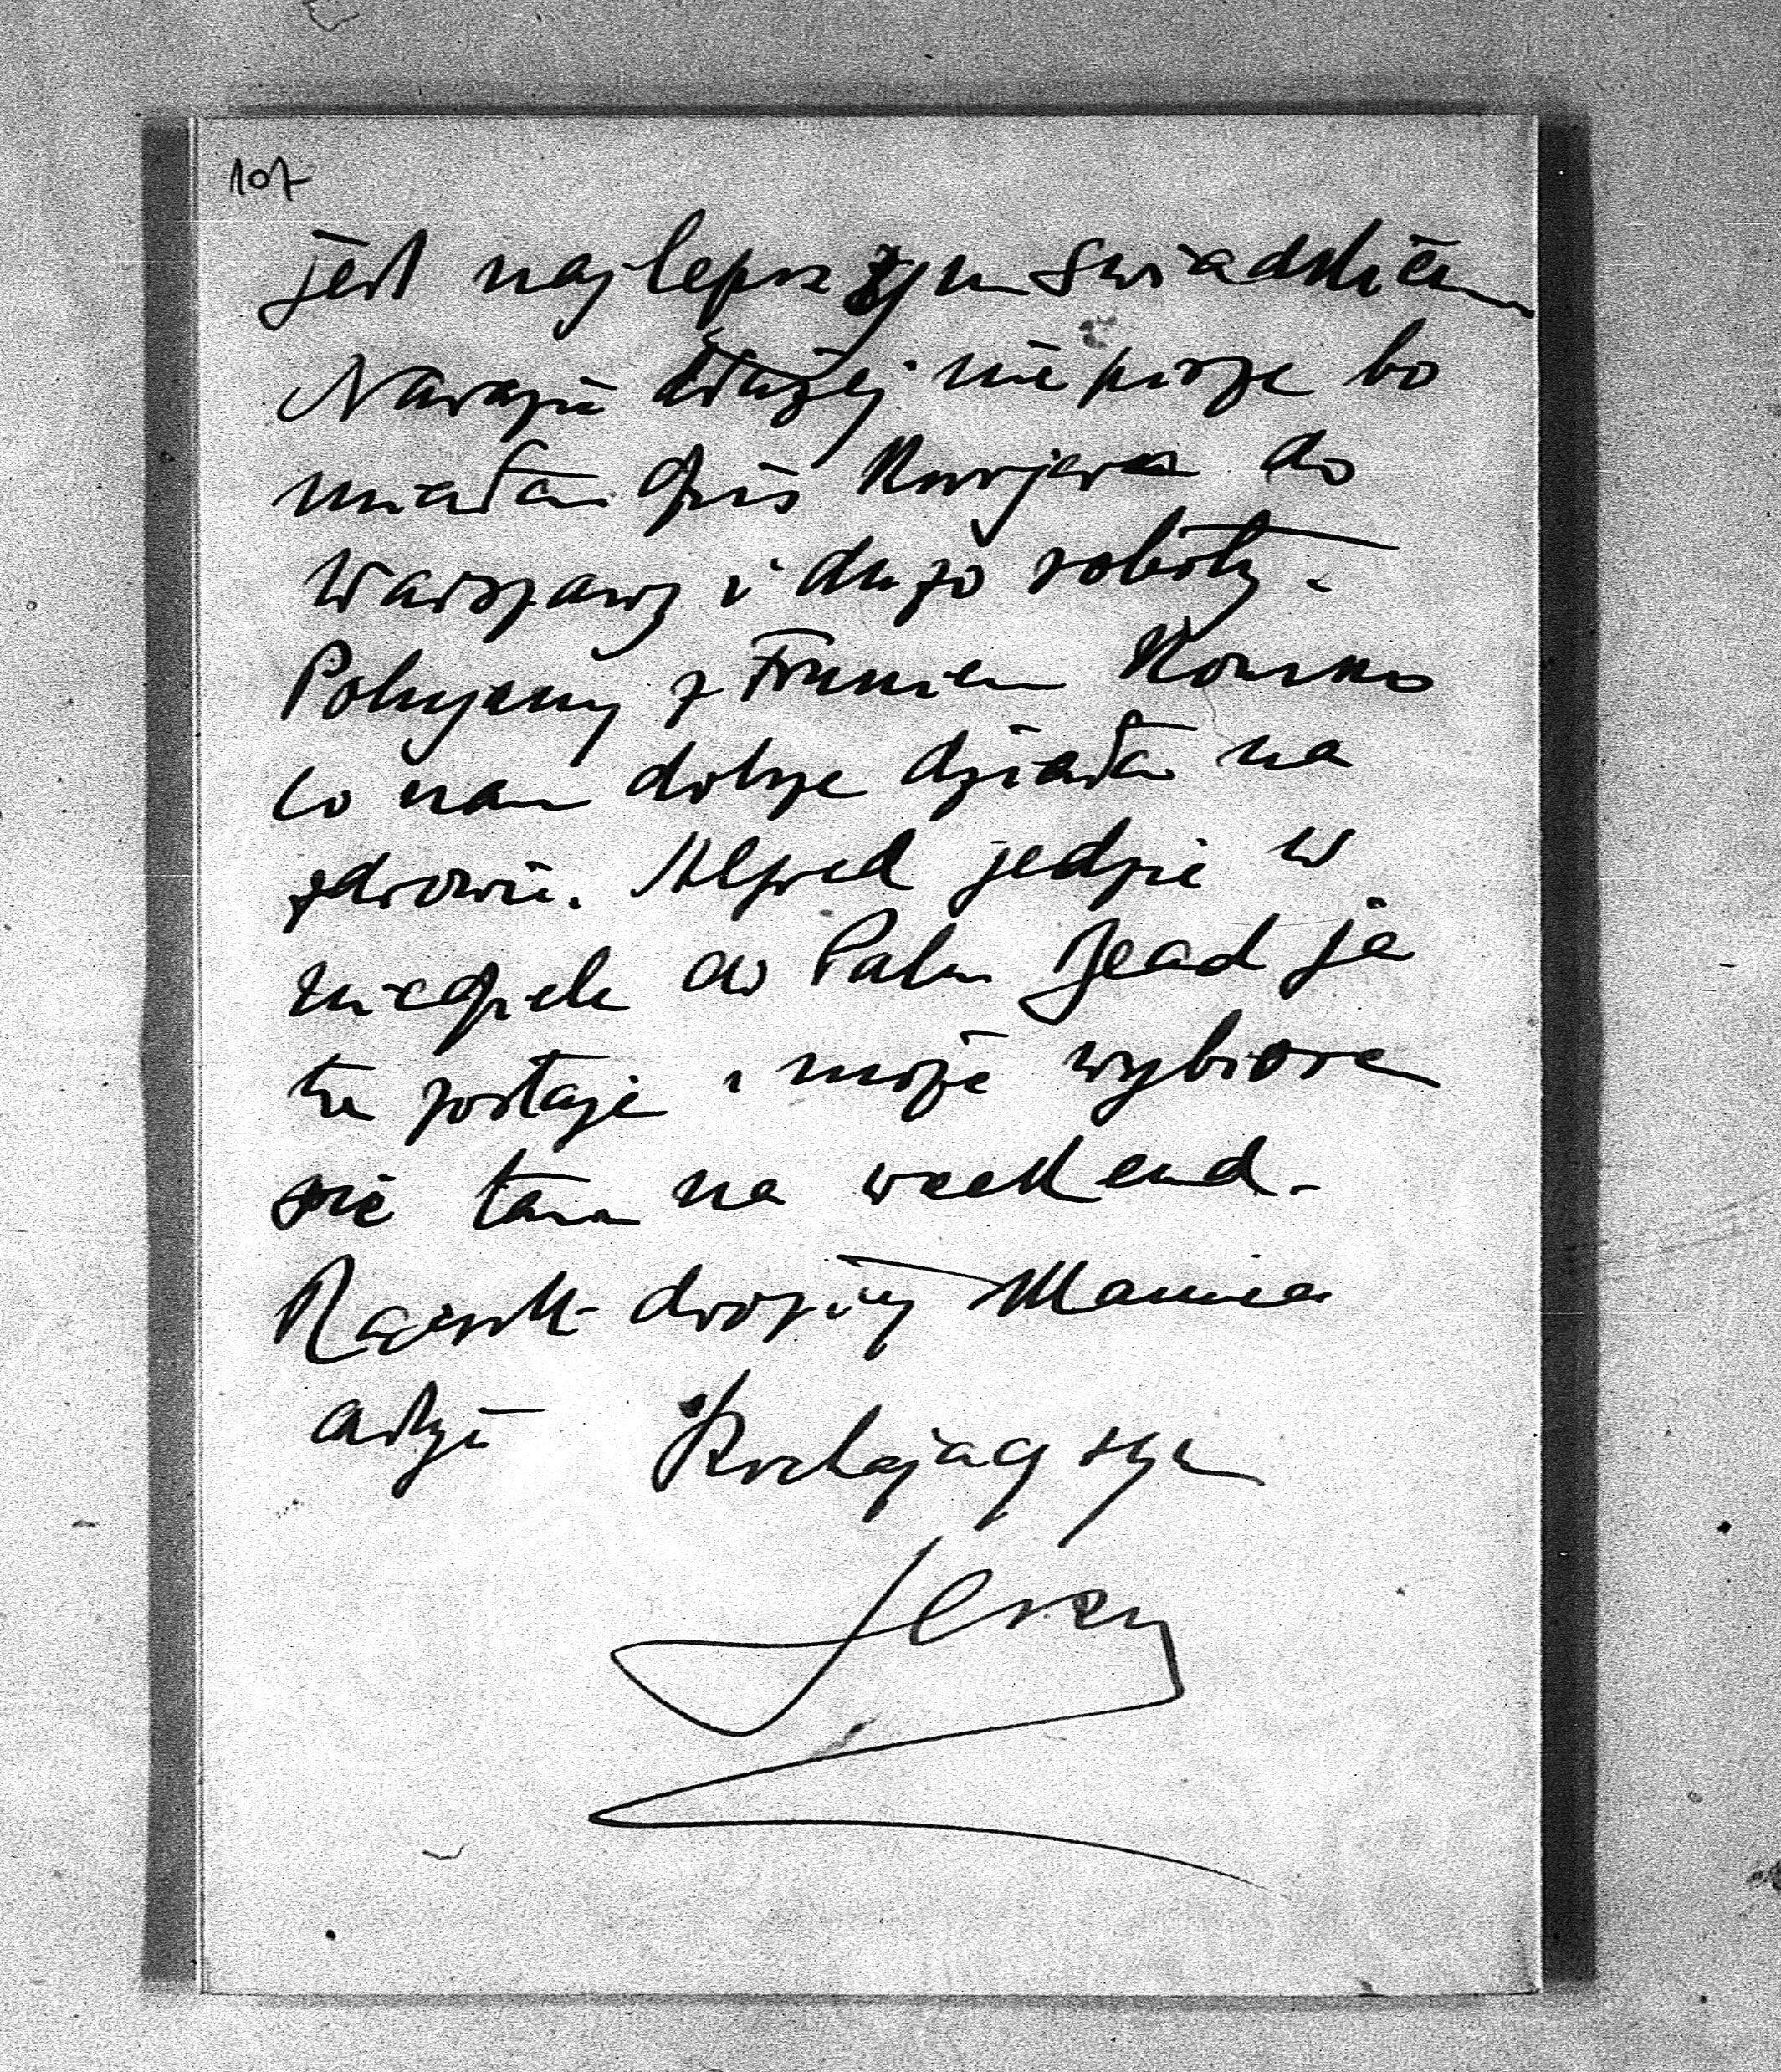 107
jest najlepszym świadkiem
Narazie dłużej nie piszę bo
miałam dziś Kurjera do
Warszawy i dużo roboty.
Polujemy z Franiem Konno
co nam dobrze działa na
zdrowie. Alfred jedzie w
niedziele do Palm Bead ja
tu zostaje i może wybiorę
się tam na weekend.
Rączki drogiej Mamie
całuje Kochający syn
Jerzy